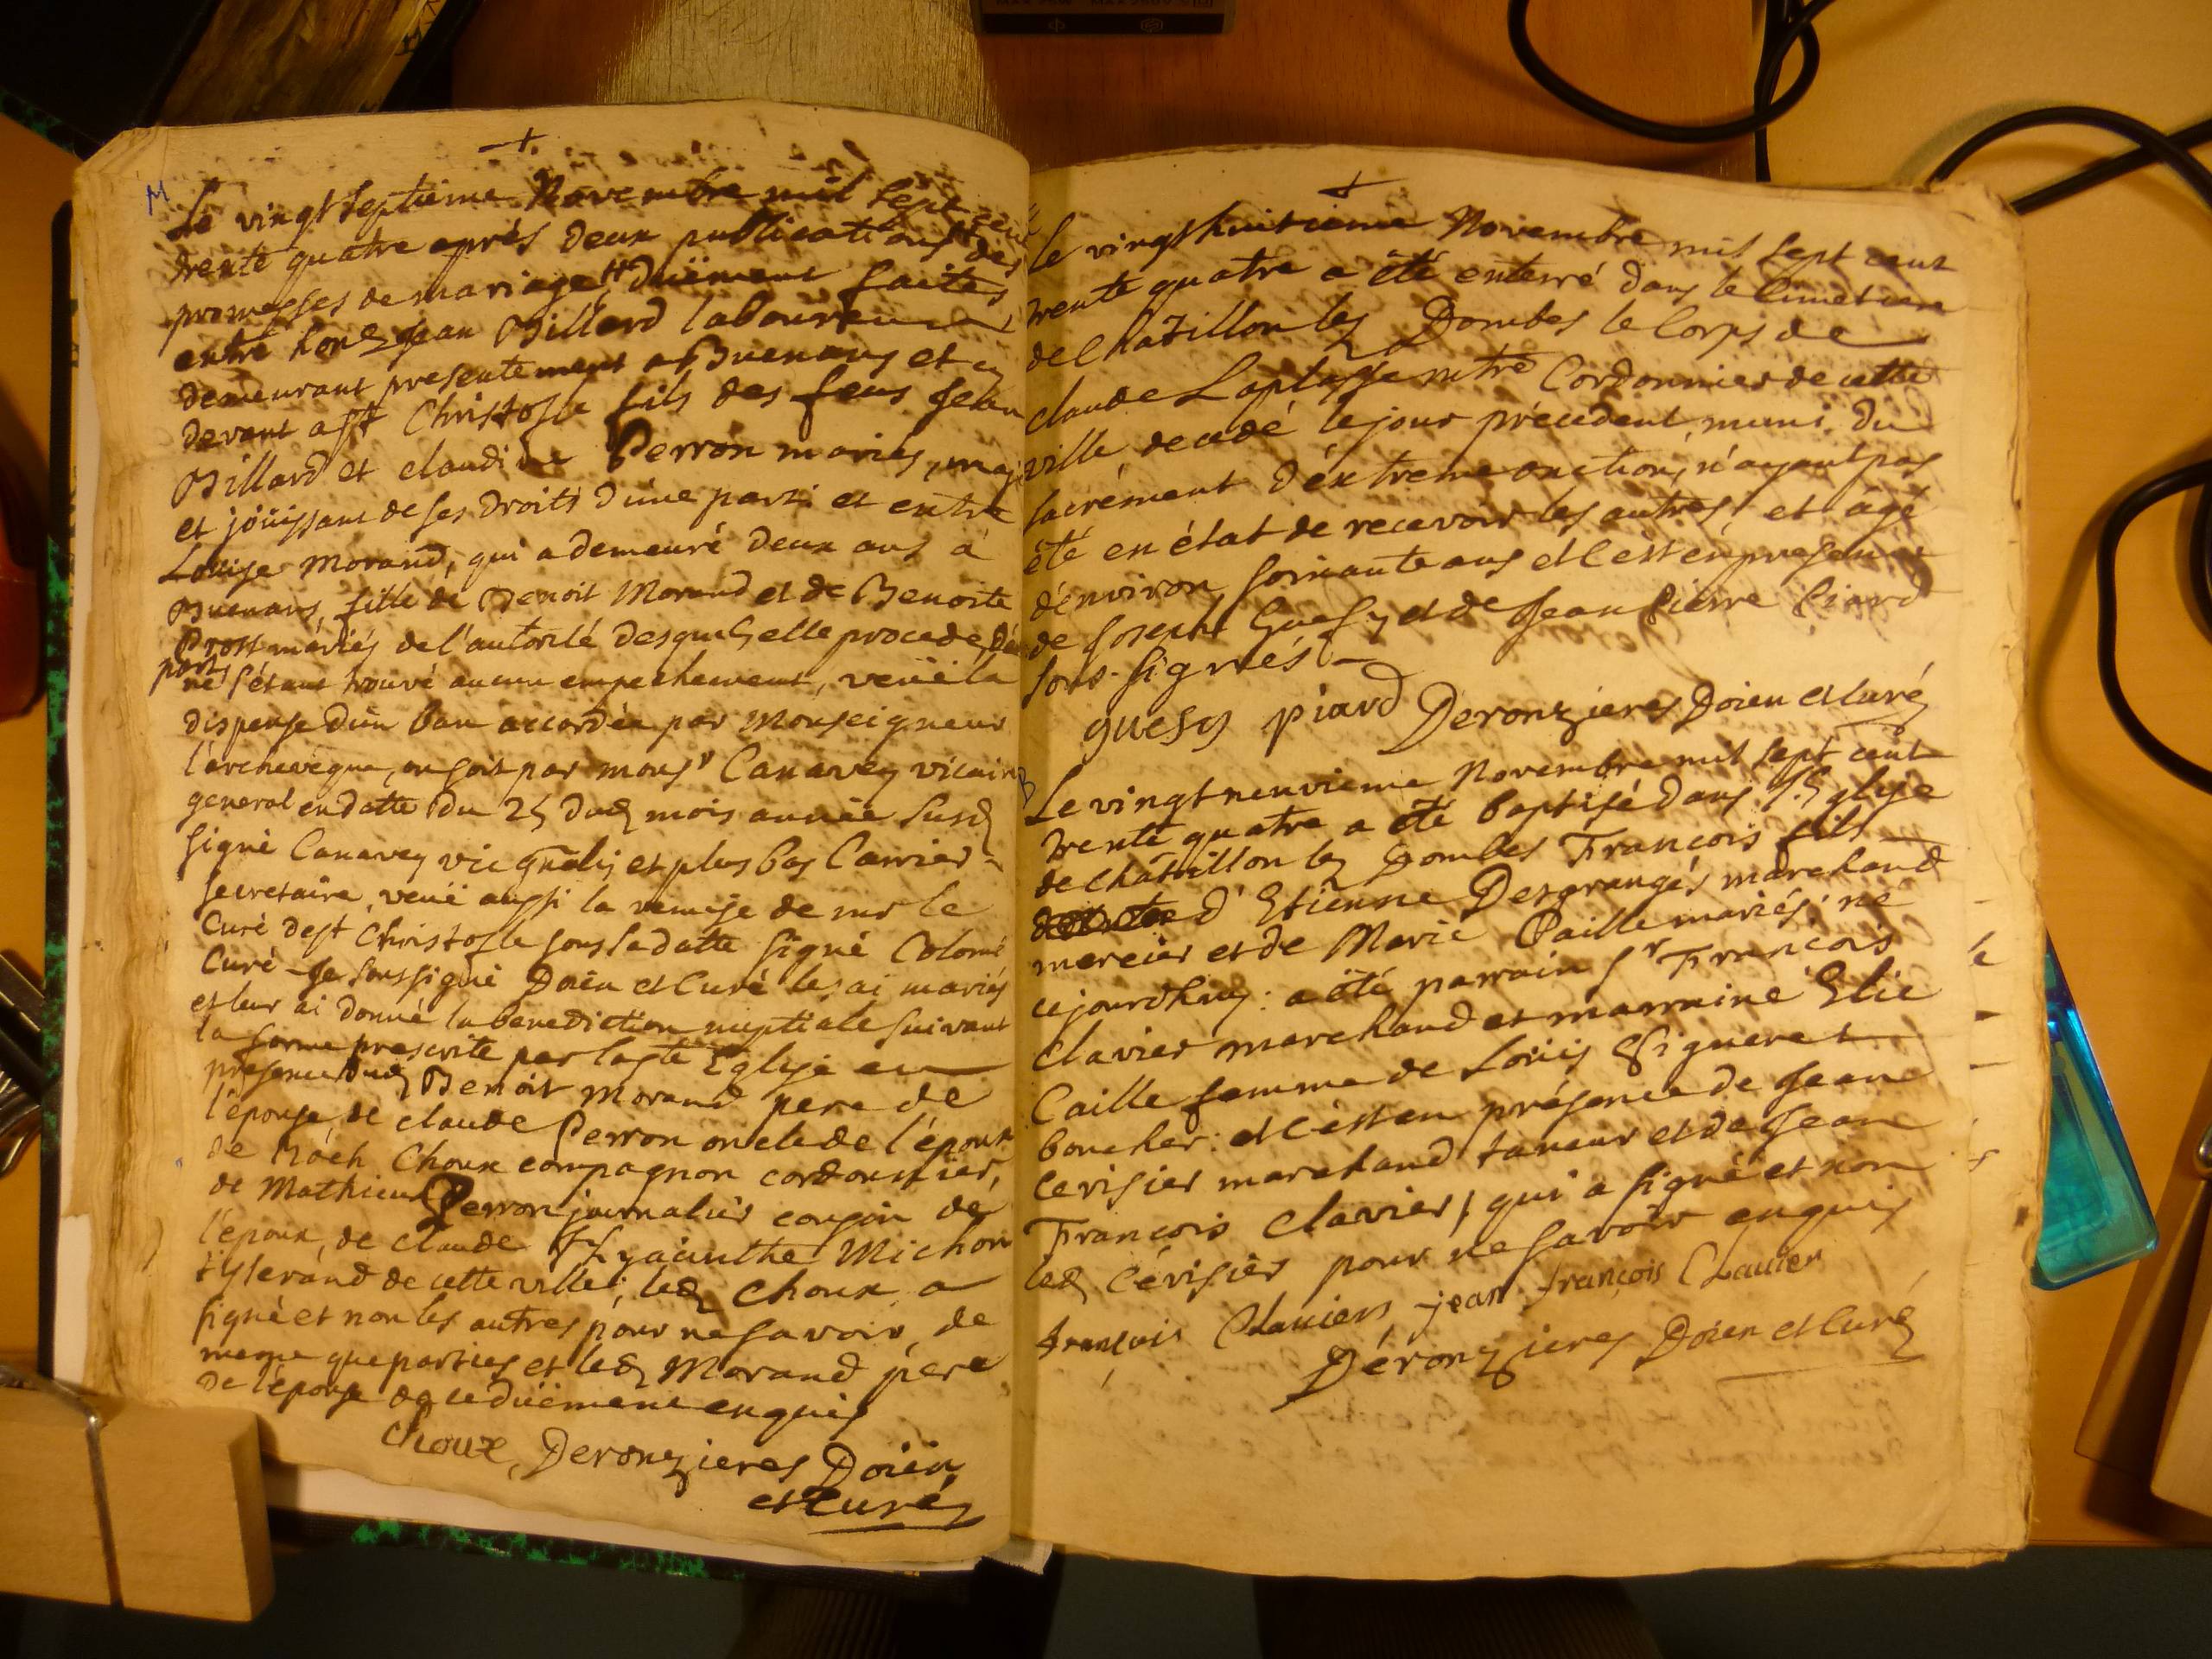 +
M
Le vingt septieme Novembre mil sept cent
trente quatre aprés deux publications des
promesses de mariage düement faites
entre hon. Jean Billard laboureur
demeurant presentement a Buenans et cy
devant a St Christofle fils des feus Jean
Billard et claudine Perron mariés, maj
et joüissant de ses droits d'une part: et entre
Loüise Morand, qui a demeuré deux ans a
Buenans, fille de Benoit Morand et de Benoite
Prost mariés de l'autorité desquels elle procede, d'e
part ne s'étant trouvé aucun empechement, veüe la
dispense d'un ban accordée par Monseigneur
l'archevêque, ou soit par monsr Canavey vicaire
general en datte du 25 dud mois année susd
signé Canavey vic gnäl; et plus bas Carrier
secretaire, veüe aussi la remise de mr le
Curé de St Christofle sous sa datte signé Colomé
Curé - Je soussigné Doïen et Curé les ai mariés
et leur ai donné la benediction nuptiale suivant
la forme prescrite par la Ste Eglise en
presence dud Benoit Morand pere de
l'épouse, de claude Perron oncle de l'époux
de Roch Choux compagnon cordonnier,
de Mathieu Perron journalier cousin de
l'époux, de claude Hyacinthe Michon
tisserand de cette ville; led Choux a
signé et non les autres pour ne savoir, de
meme que parties et led Morand pere
de l'épouse de ce düement enquis
Choux, Deronzieres Doïen
et Curé
+
Le vingt huitieme Novembre mil sept cent
trente quatre a été enterré dans le Cimetiere
de Chatillon les Dombes le Corps de
claude Laplasse mtre Cordonnier de cette
ville decedé le jour précedent, muni du
sacrément d'éxtreme onction, n'ayant pas
été en état de recevoir les autres, et âgé
d'environ soixante ans et c'est en presence
de Joseph Guesy et de Jean Pierre Piard
sous-signés
guesy piard Deronzieres Doïen et Curé
B
Le vingt neuvieme Novembre mil sept cent
trente quatre a été baptisé dans l'Eglise
de chatillon les Dombes François fils
d'Etienne Desgranges marchand
mercier et de Marie Caille mariés: né
cejourdhuy: a été parrain Sr François
Clavier marchand et marraine Elie
Caille femme de Loüis Figueret
boucher: et c'est en présence de Jean
Cevisier marchand taneur et de Jean
François Clavier, qui a signé et non
led Cévisier pour ne savoir enquis
françois Clavier, jean françois Clavier
Déronzieres Doïen et Curé